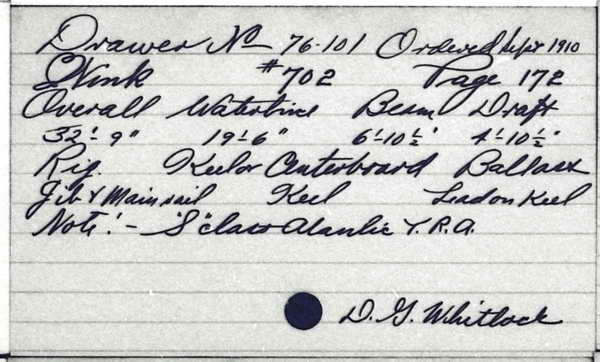 Drawer No 76-101 Ordered Sept 1910
Wink #702 Page 172
Overall Waterline Beam Draft
32'-9" 19'-6" 6'-10½" 4'-10½"
Rig. Keel or Centerboard Ballast
Jib & Mainsail Keel Lead on Keel
Note:- "S" class Atlantic Y.R.A.
D. G. Whitlock